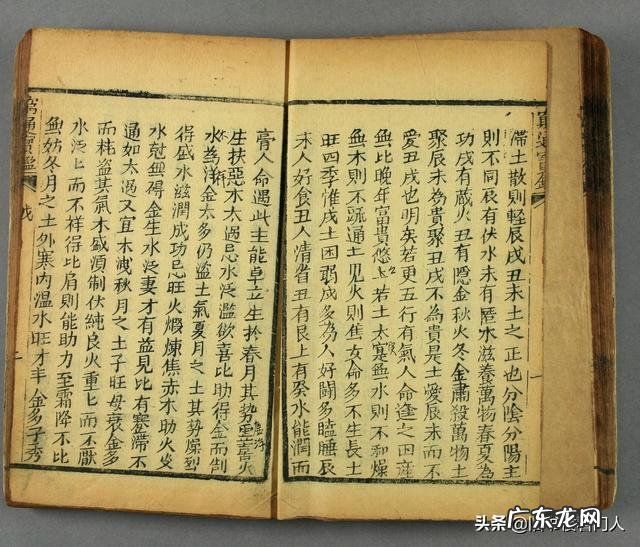 滯土散則輕辰戌丑未土之正也分陰分陽主
則不同辰有伏水未有匿木滋養萬物春夏為
功戌有蔵火丑有隠金秋火冬金肅殺萬物土
聚辰未為貴聚丑戌不為貴是土愛辰未而不
愛丑戌也明矣若更五行有氣人命逢之田產
無比晚年富貴悠〻若土太寔無水則不和燥
無木則不疏通土見火則焦女命多不生長土
旺四季惟戌土困弱戌多為人好鬪多瞌睡辰
未人好食丑人清省丑有艮土有癸水能潤而
膏人命遇此主能卓立生扵春月其勢虛浮喜火
生扶惡木太過忌水泛濫欲喜比助得金而制
水為祥金太多仍盜土氣夏月之土其勢燥烈
得盛水滋潤成功忌旺火煆煉焦赤木助火炎
水尅無碍金生水泛妻才有益見比有蹇滯不
通如太過又宜木洩秋月之土子旺母衰金多
而耗盜其氣木盛須制伏純良火重上而不厭
水泛上而不祥得比肩則能助力至霜降不比
無妨冬月之土外寒內溫水旺才丰金多子秀
窮通寶鑑
頭条
广东龙网
GDSLW.COM